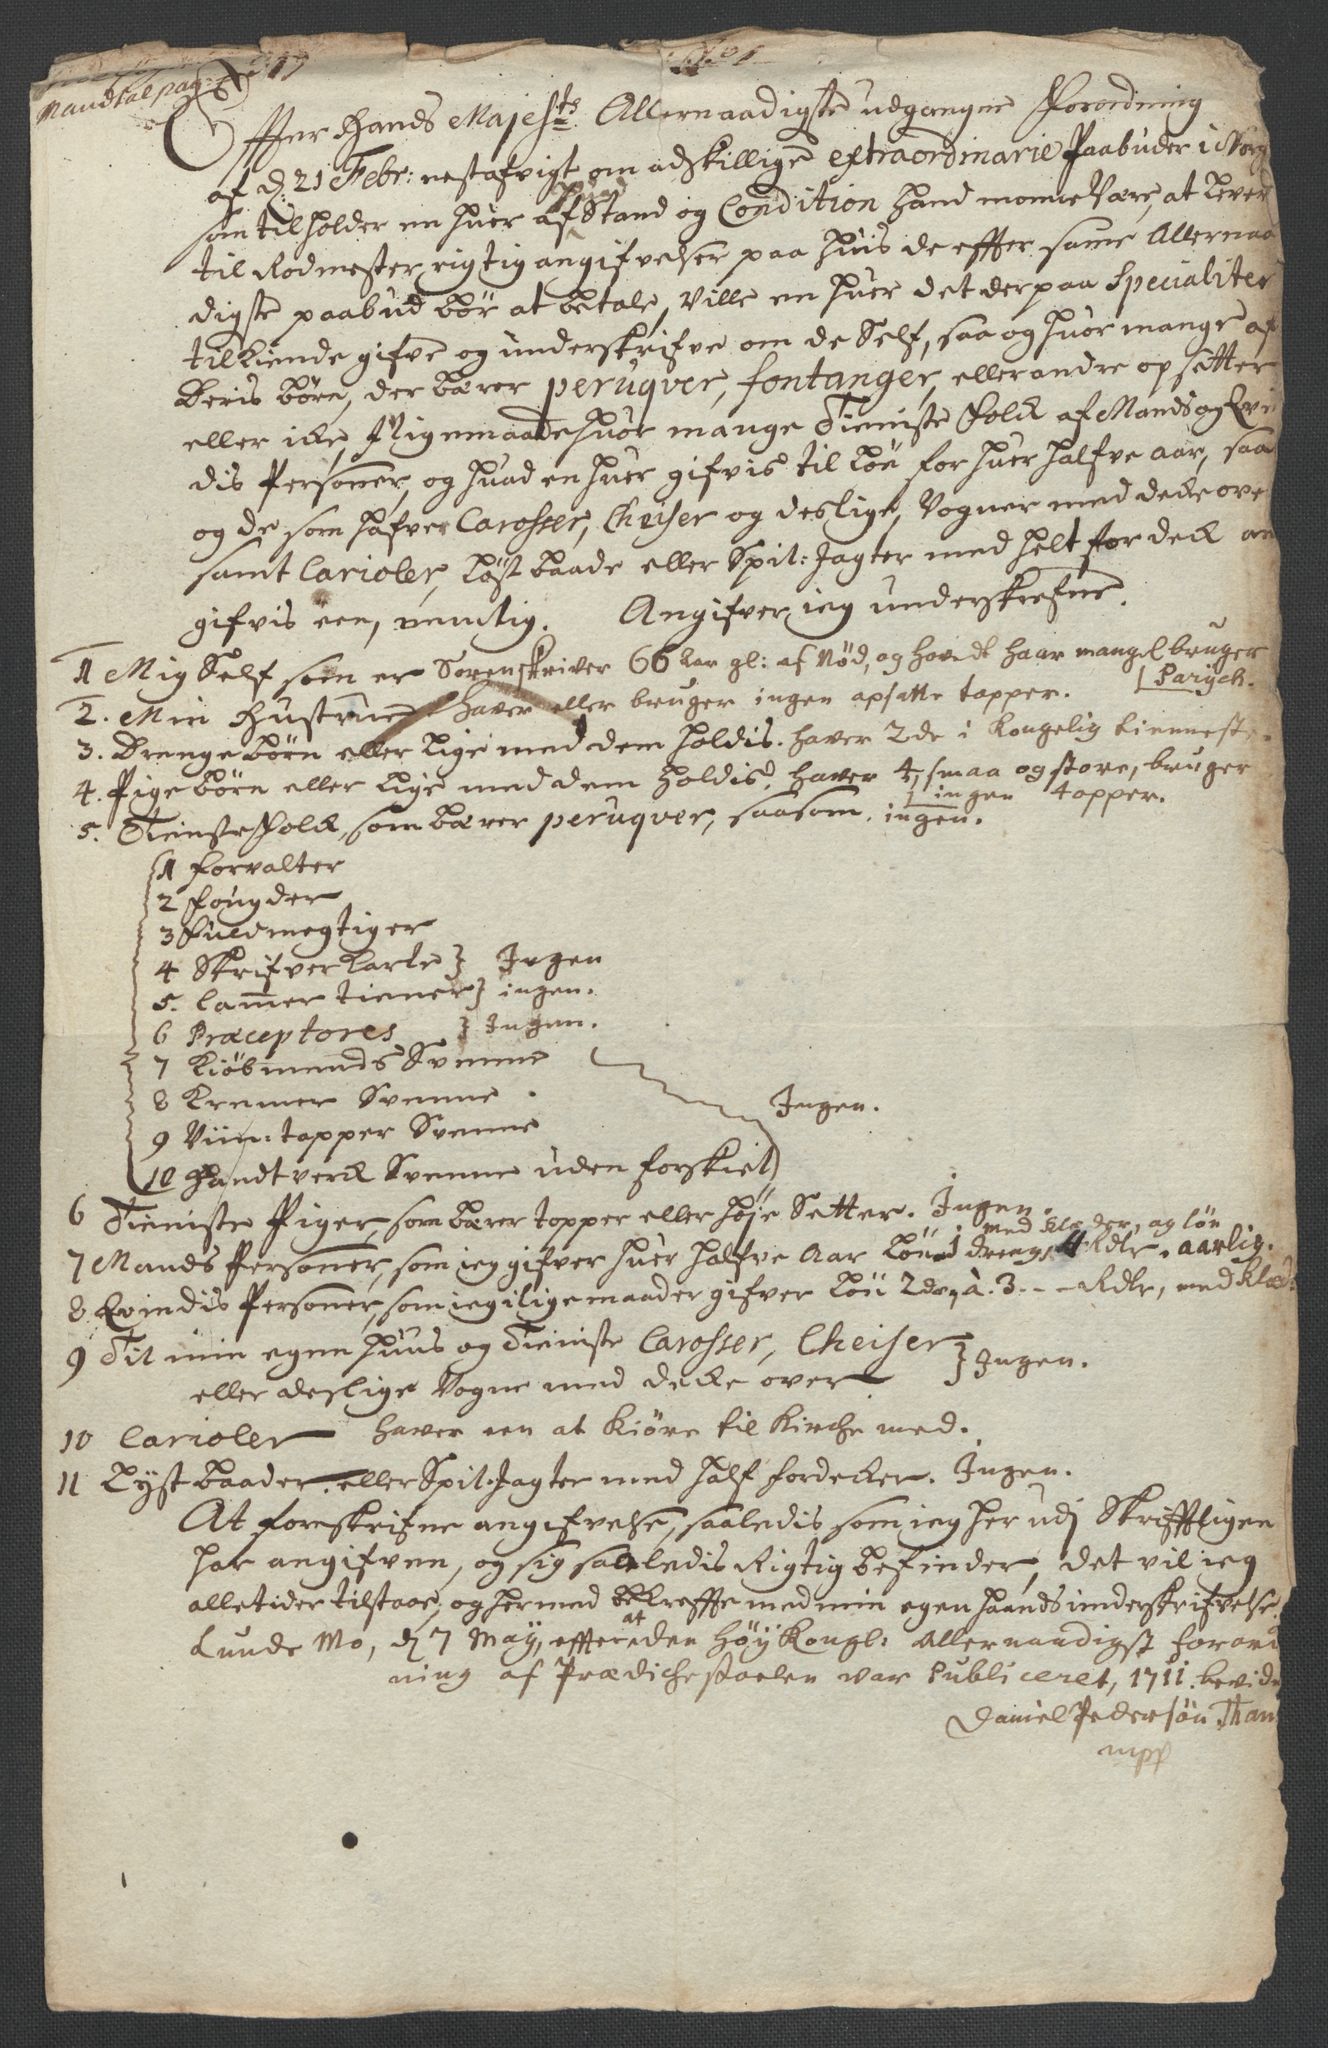 Mandtal pag:
Effter Hands Majest:s Allernaadigste udgangne Forordning
af d: 21 Febr: nestafvigt om adskillige extraordinarie Paabuder i Norg
som tilholder en huer af huad Stand og Condition hand monne være, at lever
til Rodmester rigtig angifvelser paa huis de effter samme Allernaa
digste paabud bør at betale, Ville en huer det derpaa Specialiter
tilkiende gifve og underskrifve om de Self, saa og huor mange af
Deris børn, der bærer peruqver, fontanger, eller andre opsetter
eller icke, Ligemaade huor mange Tieniste Folck af Mands og Qvin
dis Personer, og huad en huer gifvis til Løn for huer halfve aar, saa
og de som hafver Carosser, Cheiser og deslige, Vogner med decke ove
samt Carioler, Løst baade eller Spil: Jagter med helt fordeck an
gifvis een, nemlig. Angifver ieg underskrefne.
1 Mig Self som er Sorenskriver 66 aar gl: af Nød, og hoved haar mangel bruger
Parych.
2. Min Hustrue haver eller bruger ingen opsatte topper.
3. Drenge børn eller lige med dem holdis. haver 2de i Kongelig tienneste.
4. Pige børn eller lige med dem holdis, haver 4, smaa og store, bruger
ingen topper.
5. Tienste Folck, som bærer peruqver, saasom. ingen.
1 Forvalter
2 Fougder
3 Fuldmegtiger
4 Skrifver Karle } Ingen
5. Cammer tiener } ingen.
6 Præceptores } Ingen.
7 Kiøbmends Svenne
8 Kremer Svenne.
9 Viin: tapper Svenne
Ingen.
10 Handtverck Svenne uden forskiel
6 Tieniste Piger, som bærer topper eller høje Setter. Ingen.
med klæder, og løn
7 Mands Personer, som ieg gifver huer halfve Aar Løn 1 dreng, 4 Rdlr. aarlig.
8 Qvindis Personer, som ieg i lige maader gifver Løn 2de, à. 3 -- Rdlr, med Klæd:
9 Til min egen huus og Tieniste Carosser, Cheiser
eller deslige Vogne med decke over } Ingen.
10 Carioler haver een at kiøre til Kirche med.
11 Lyst baader, eller Spil: Jagter med half fordecker. Ingen.
At foreskrifne angifvelse, saaledis som ieg her udj Skrifftligen
har angifven, og sig saaledis Rigtig befinder, det vil ieg
alletider tilstaae, og hermed bekreffte med min egen haands underskrifvelse.
Lunde Mo, d 7 May, effter at den Høy Kongl: Allernaadigst forord
ning af Prædichestoelen var Publiceret, 1711. bevidn
Daniel Pedersøn Than
mpp